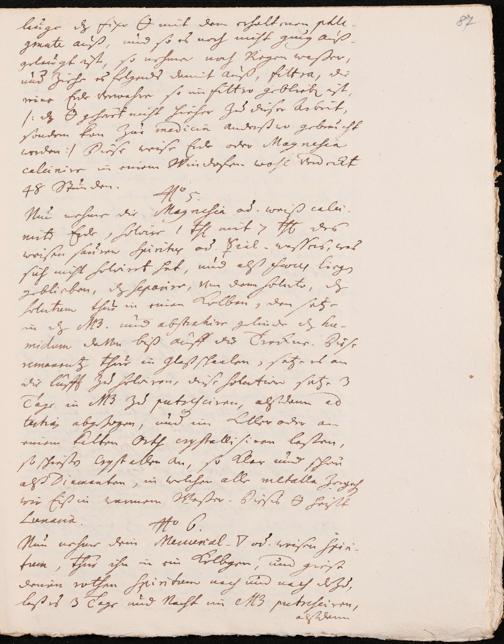 87
lauge dz fixe 🜔 mit dem erhaltenen phle-
gmate auß, und so es noch nicht gnug auß-
gelaugt ist, so nehme noch Regen wasser,
und ziehe es folgends damit auß, filtra, die
reine Erde verwahre so im filtro geblieben ist,
/: dz 🜔 gehört nicht hieher zu dieser Arbeit,
sondern kan zur medicin anderst wo gebraucht
werden :/ Diese weise Erde oder Magnesia
calcinire in einem Windofen wohl
48 Stunden.
No 5.
Nun nehme die Magnesia od. weiß calci-
nirte Erde, solvire 1 ℔ mit 7 ℔ des
weisen sauren Spiritus od. wassers, was
sich nicht solvirt hat, und alß
geblieben, dz separire, von dem soluto, dz
solutum thue in einen Kolben, den setze
in dz MB. und abstrahire gelinde dz hu-
midum davon biß auff das Trockne. Diese
thue in Glaßschaalen, setze es an
die Lufft zu solviren, diese solution setze 3
Tage in MB zu putrificiren, alßdann ad
tertias abgezogen, und im Keller oder an
einem kalten Orth crystallisiren lassen,
so schiest Crystallen an, so klar und schön
alß Diamanten, in welchen alle metalla zergehen
wie Eiß in warmen Wasser. Dieses 🜔 heist
Lunaria.
No 6.
Nun nehme dein Mercurial-🜄 od. weisen Spiri-
tum, thue ihn in ein Kölbgen, und giese
deinen rothen Spiritum nach und nach dazu,
laß es 3 Tage und Nacht im MB putrificiren,
alßdann